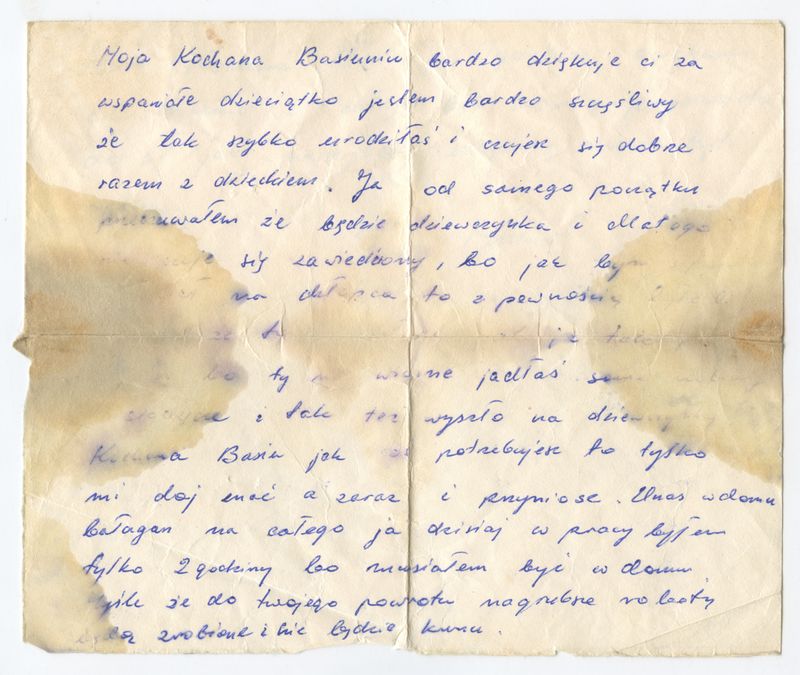 Moja Kochana Basiuniu bardzo dziękuje ci za
wspaniałe dzieciątko jestem bardzo szczęśliwy
że tak szybko urodziłaś i czujesz się dobrze
razem z dzieckiem. Ja od samego początku
że będzie dziewczynka i dlatego
się zawiedziony, bo jak bym
na chłopca to z pewnością
bo ty jadłaś
i tak też wyszło na
Kochana Basiu jak potrzebujesz to tylko
mi daj znać a zaraz i przyniose. U nas w domu
bałagan na całego ja dzisiaj w pracy byłem
tylko 2 godziny bo musiałem być w domu
że do twojego powrotu nagrubsze roboty
zrobione i nie będzie kurzu.